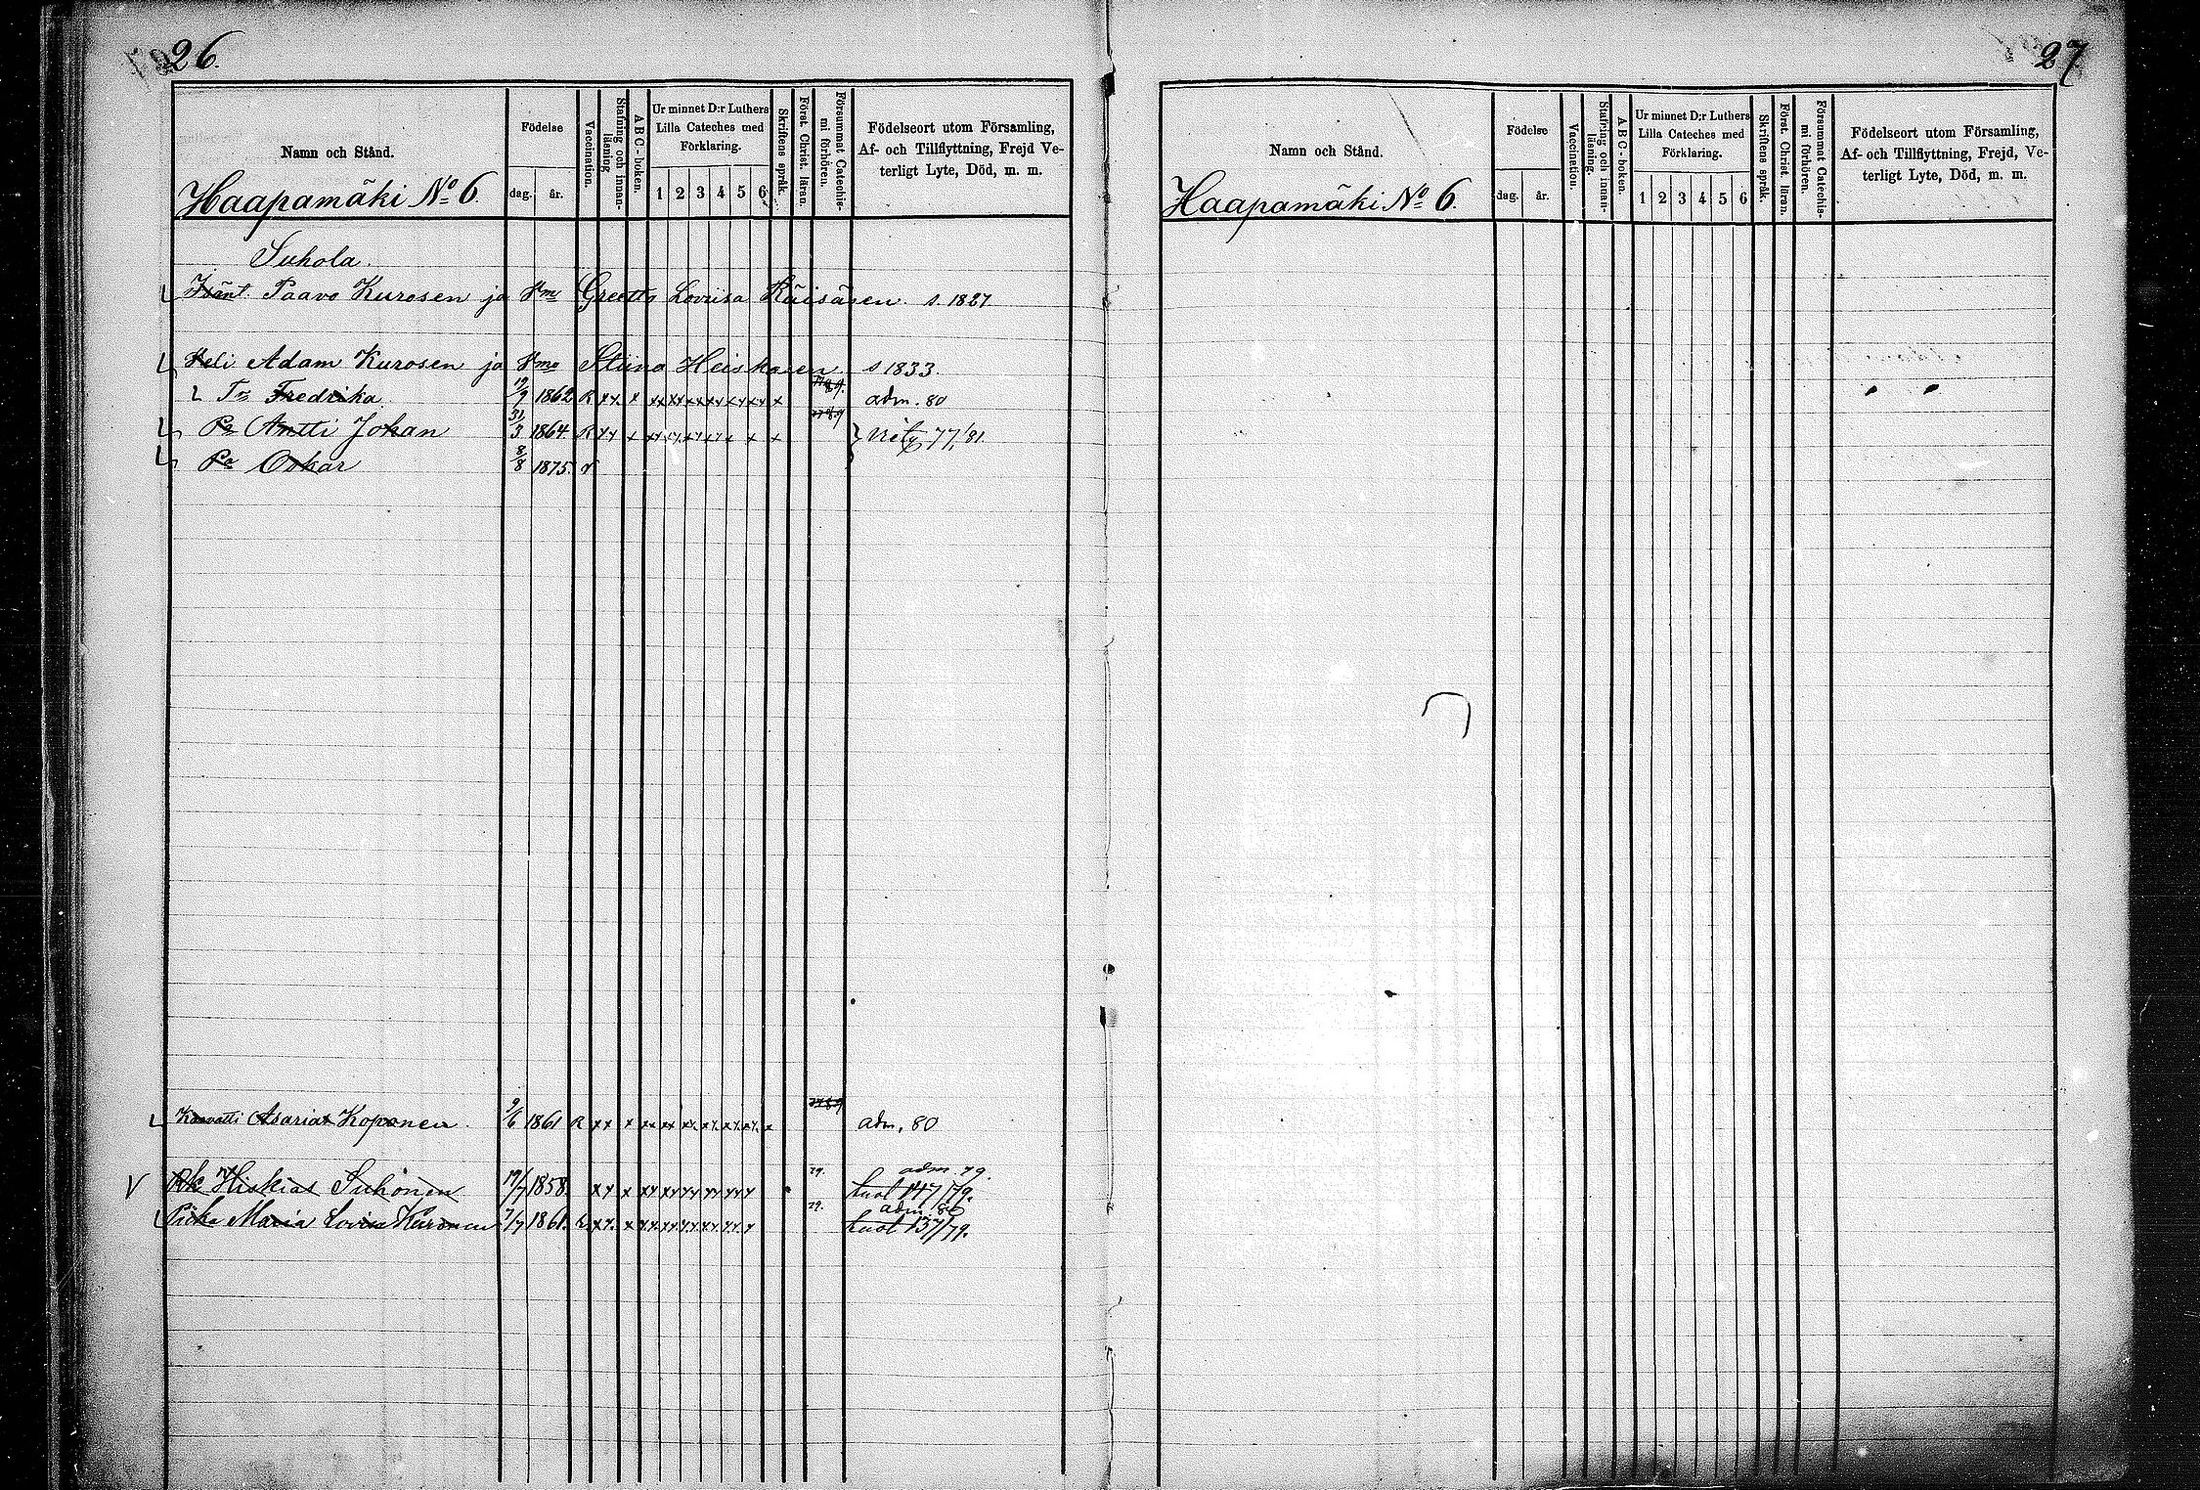 26.
Namn och Stånd.
Födelse
dag.
år.
Vaccination.
Stafning och innan-
läsning
A B C - boken.
Ur minnet D:r Luthers
Lilla Cateches med
Förklaring.
1 2 3 4 5 6
Skriftens språk.
Först. Christ. läran.
Försummat Catechis-
mi förhören.
Födelseort utom Församling,
Af- och Tillflyttning, Frejd Ve-
terligt Lyte, Död, m. m.
Haapamäki No 6.
Suhola.
Isänt. Paavo Kurosen ja Vmo Greetta Loviisa Räisäsen s. 1827.
Veli Adam Kurosen ja Vmo Stiina Heiskasen s 1833.
Tr Fredrika 19/9 1862 R xx. x xx xx xx xx xx xx x adm. 80
Pa Antti Johan 31/3 1864. R xx x x x
77/81.
Pa Oskar 8/8 1875. v
Kasvatti Asarias Koponen. 9/6 1861 R xx x xx xx xx xx xx xx. x adm, 80
Rk Hiskias Suhonen 19/7 1858. xx x xx xx xx xx xx 79. adm. 79.
147/79.
Piika Maria Loviisa Kuronen 7/7 1861. xx. x xx xx xx xx xx 79. adm. 80
137/79.
27
Namn och Stånd.
Födelse
dag.
år.
Vaccination.
Stafning och innan-
läsning.
A B C - boken.
Ur minnet D:r Luthers
Lilla Cateches med
Förklaring.
1 2 3 4 5 6
Skriftens språk.
Först. Christ. läran.
Försummat Catechis-
mi förhören.
Födelseort utom Församling,
Af- och Tillflyttning, Frejd, Ve-
terligt Lyte, Död, m. m.
Haapamäki No 6.